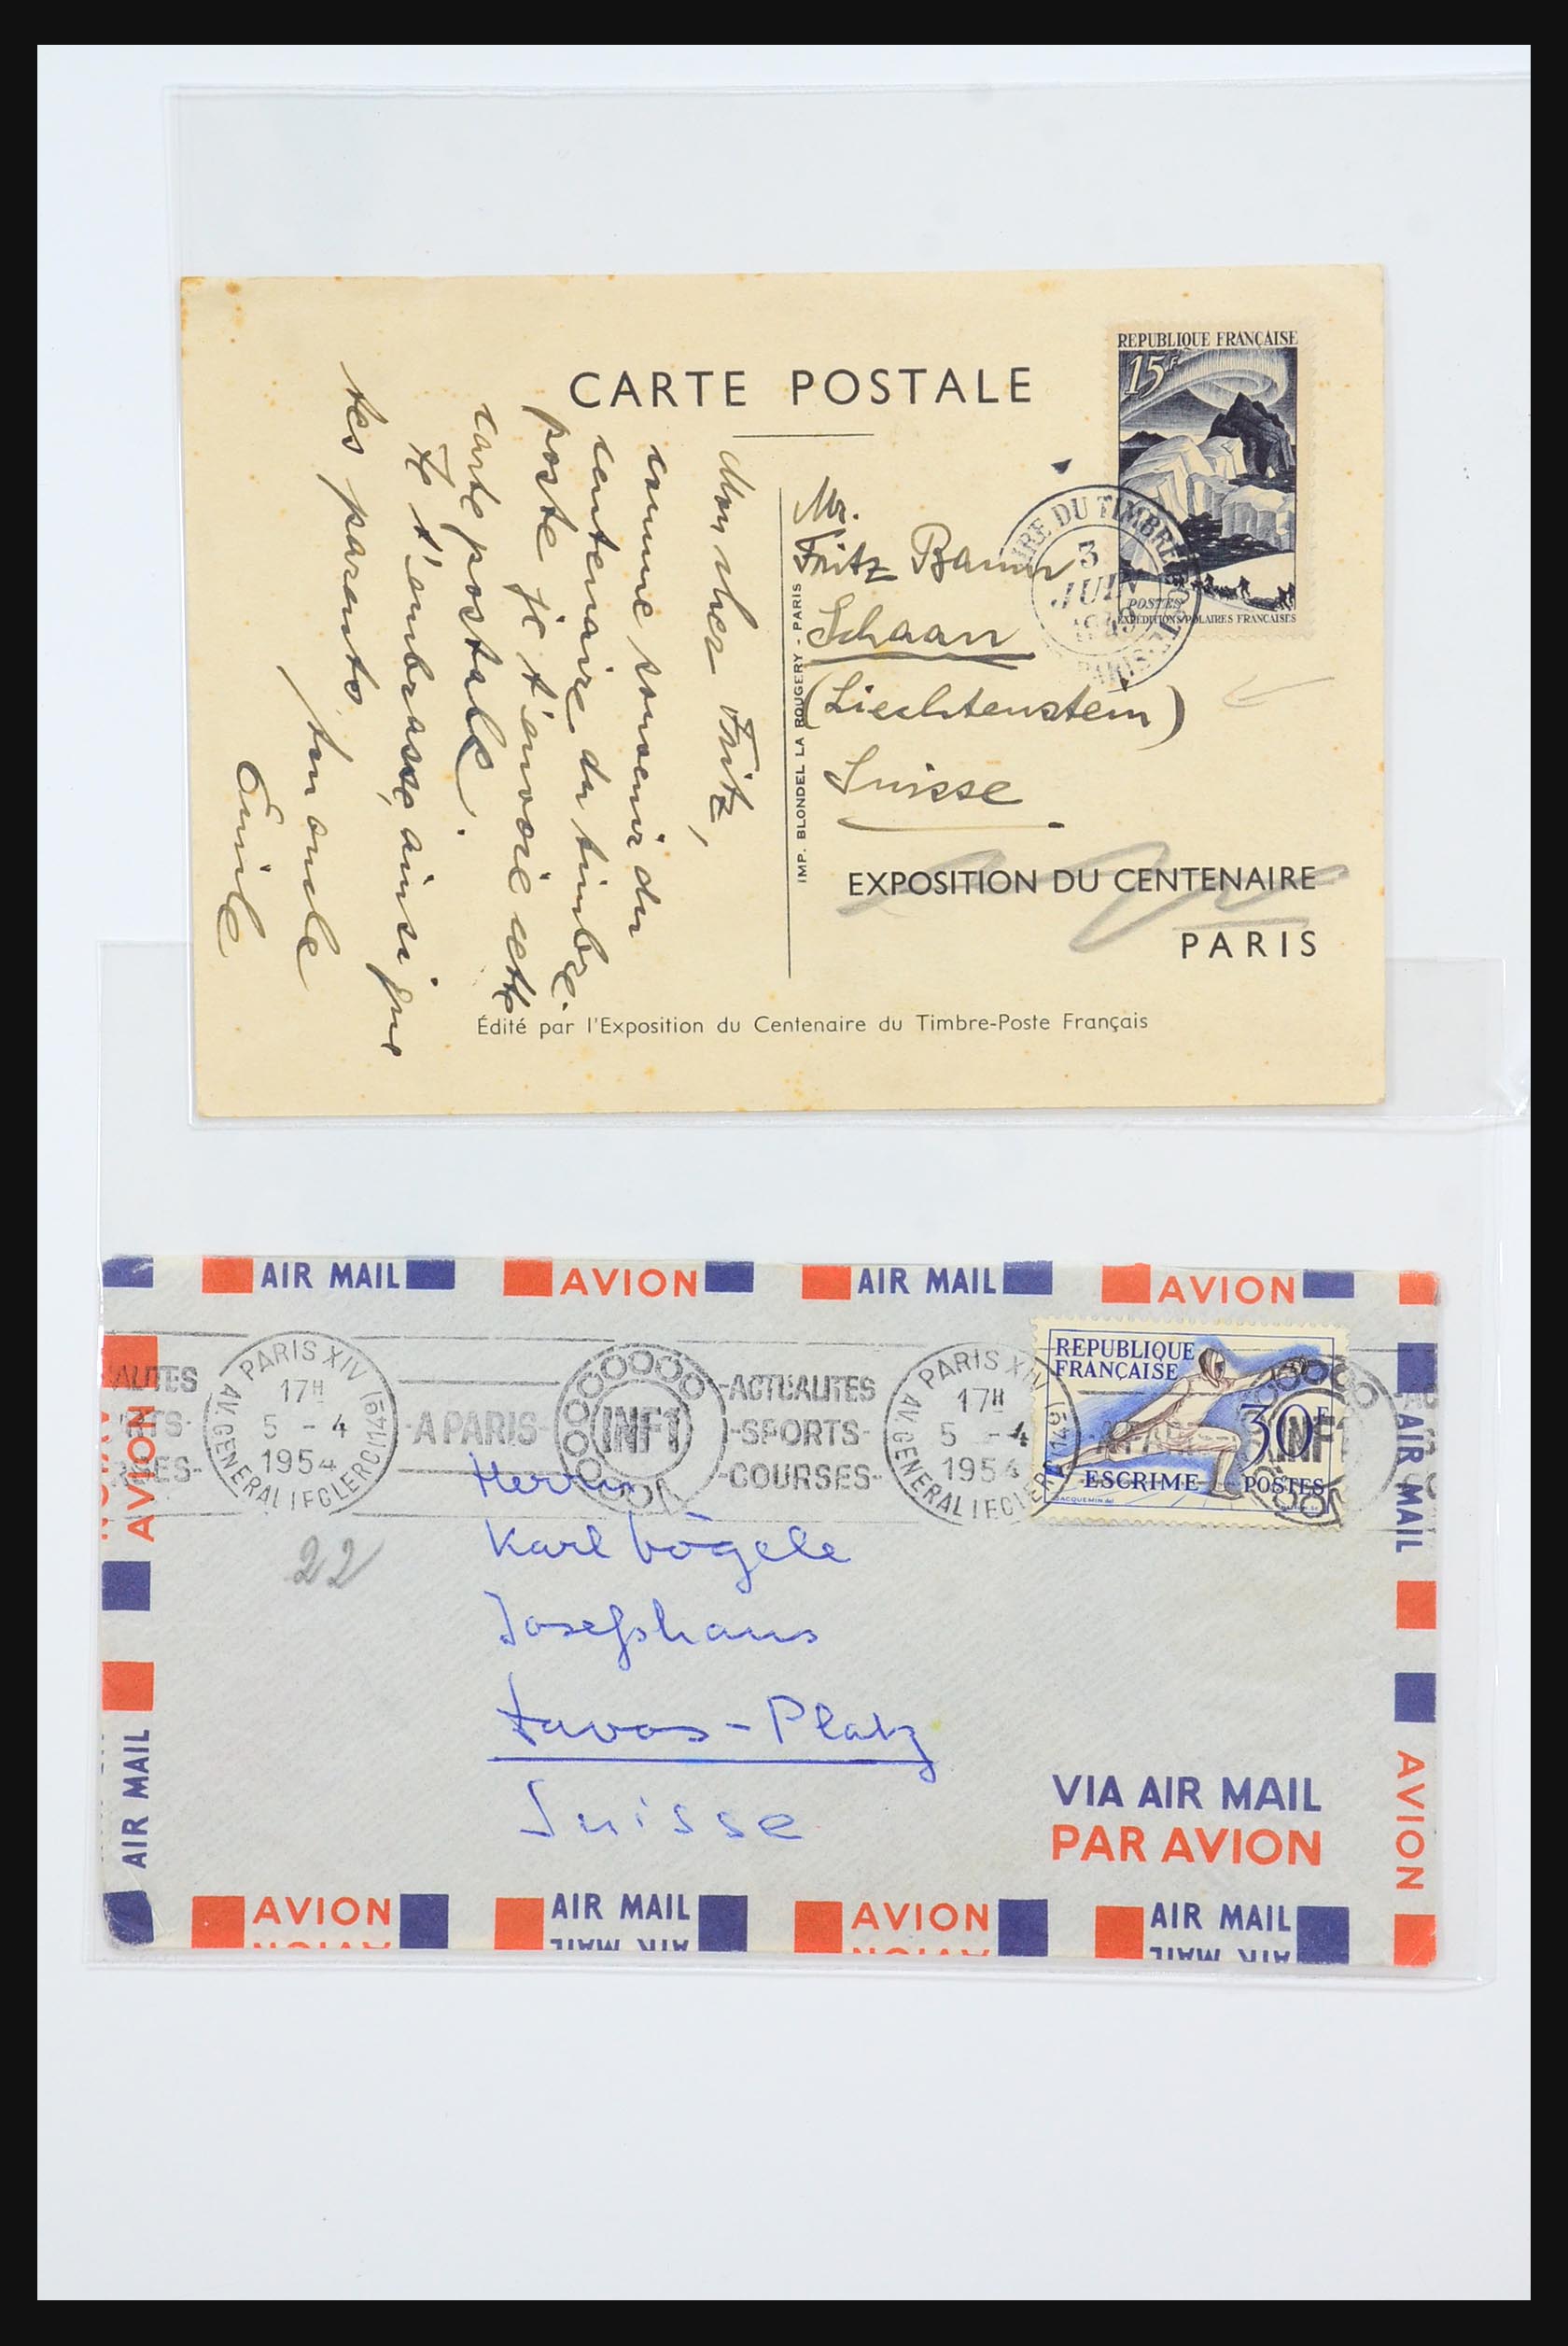 CARTE POSTALE
REPUBLIQUE FRANÇAISE
15F
POSTES
EXPÉDITIONS POLAIRES FRANÇAISES
IRE DU TIMBRE
3
JUIN
1949
PARIS
Mon cher Fritz,
comme souvenir du
centenaire du timbre
poste je t'envoie cette
carte postale.
Je t'embrasse, ainsi que
tes parents.
ton oncle
Emile
IMP. BLONDEL LA ROUGERY - PARIS
Mr.
Fritz Baum
Schaan
(Liechtenstein)
Suisse
EXPOSITION DU CENTENAIRE
PARIS
Édité par l'Exposition du Centenaire du Timbre-Poste Français
AIR MAIL AVION AIR MAIL AVION
AVION
AIR MAIL
AIR MAIL
AVION
PARIS XIV
17H
5 - 4
1954
AV. GENERAL LECLERC (149)
-A PARIS-
INF1
-ACTUALITES
-SPORTS-
-COURSES-
PARIS XIV
17H
5 - 4
1954
AV. GENERAL LECLERC (149)
INF1
REPUBLIQUE
FRANÇAISE
30F
ESCRIME
POSTES
JACQUEMIN
22
Herrn
Karl Vögele
Josefshaus
Davos-Platz
Suisse
VIA AIR MAIL
PAR AVION
AVION AIR MAIL AVION AIR MAIL